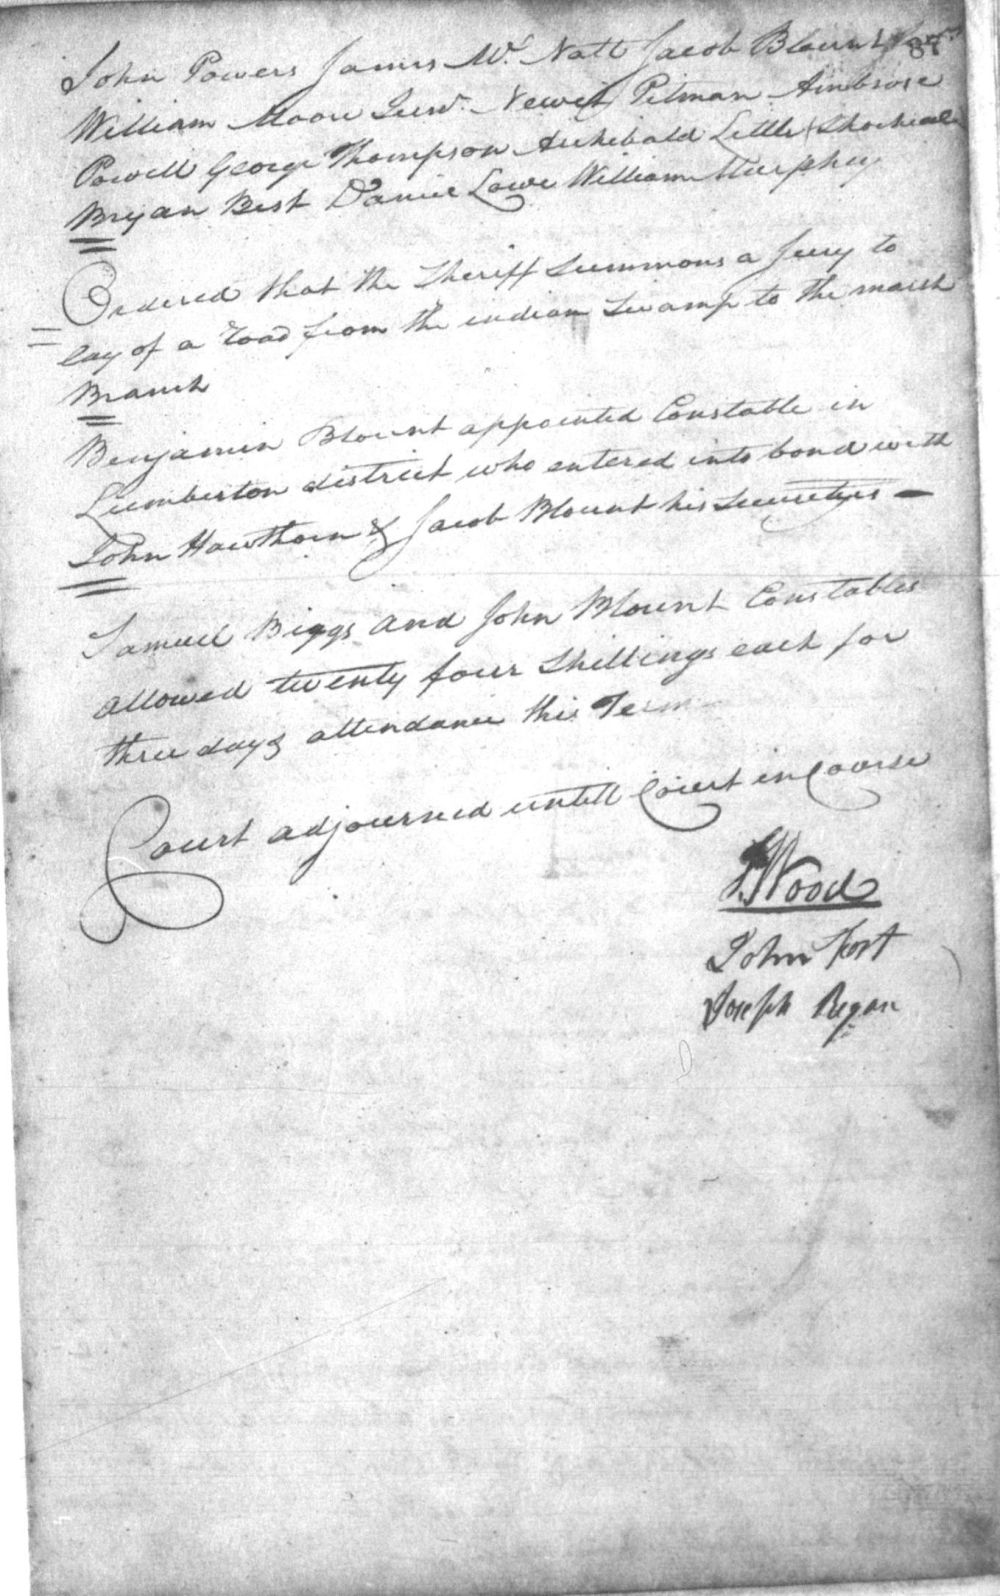 John Powers James Mc. Natt Jacob Blount
87
William Moore Junr. Newit Pitman Ambrose
Powell George Thompson Archibald Little
Bryan Best Daniel Lowe William Murphey
Ordered that the Sheriff Summons a Jury to
lay of a road from the indian Swamp to the marsh
Branch
Benjamin Blount appointed Constable in
Lumberton district who entered into bond with
John Hawthorn & Jacob Blount his Securityes
Samuel Biggs and John Blount Constables
allowed twenty four Shillings each for
three days attendance this Term
Court adjourned untill Court in Course
J. Wood
John Fort
Joseph Regan